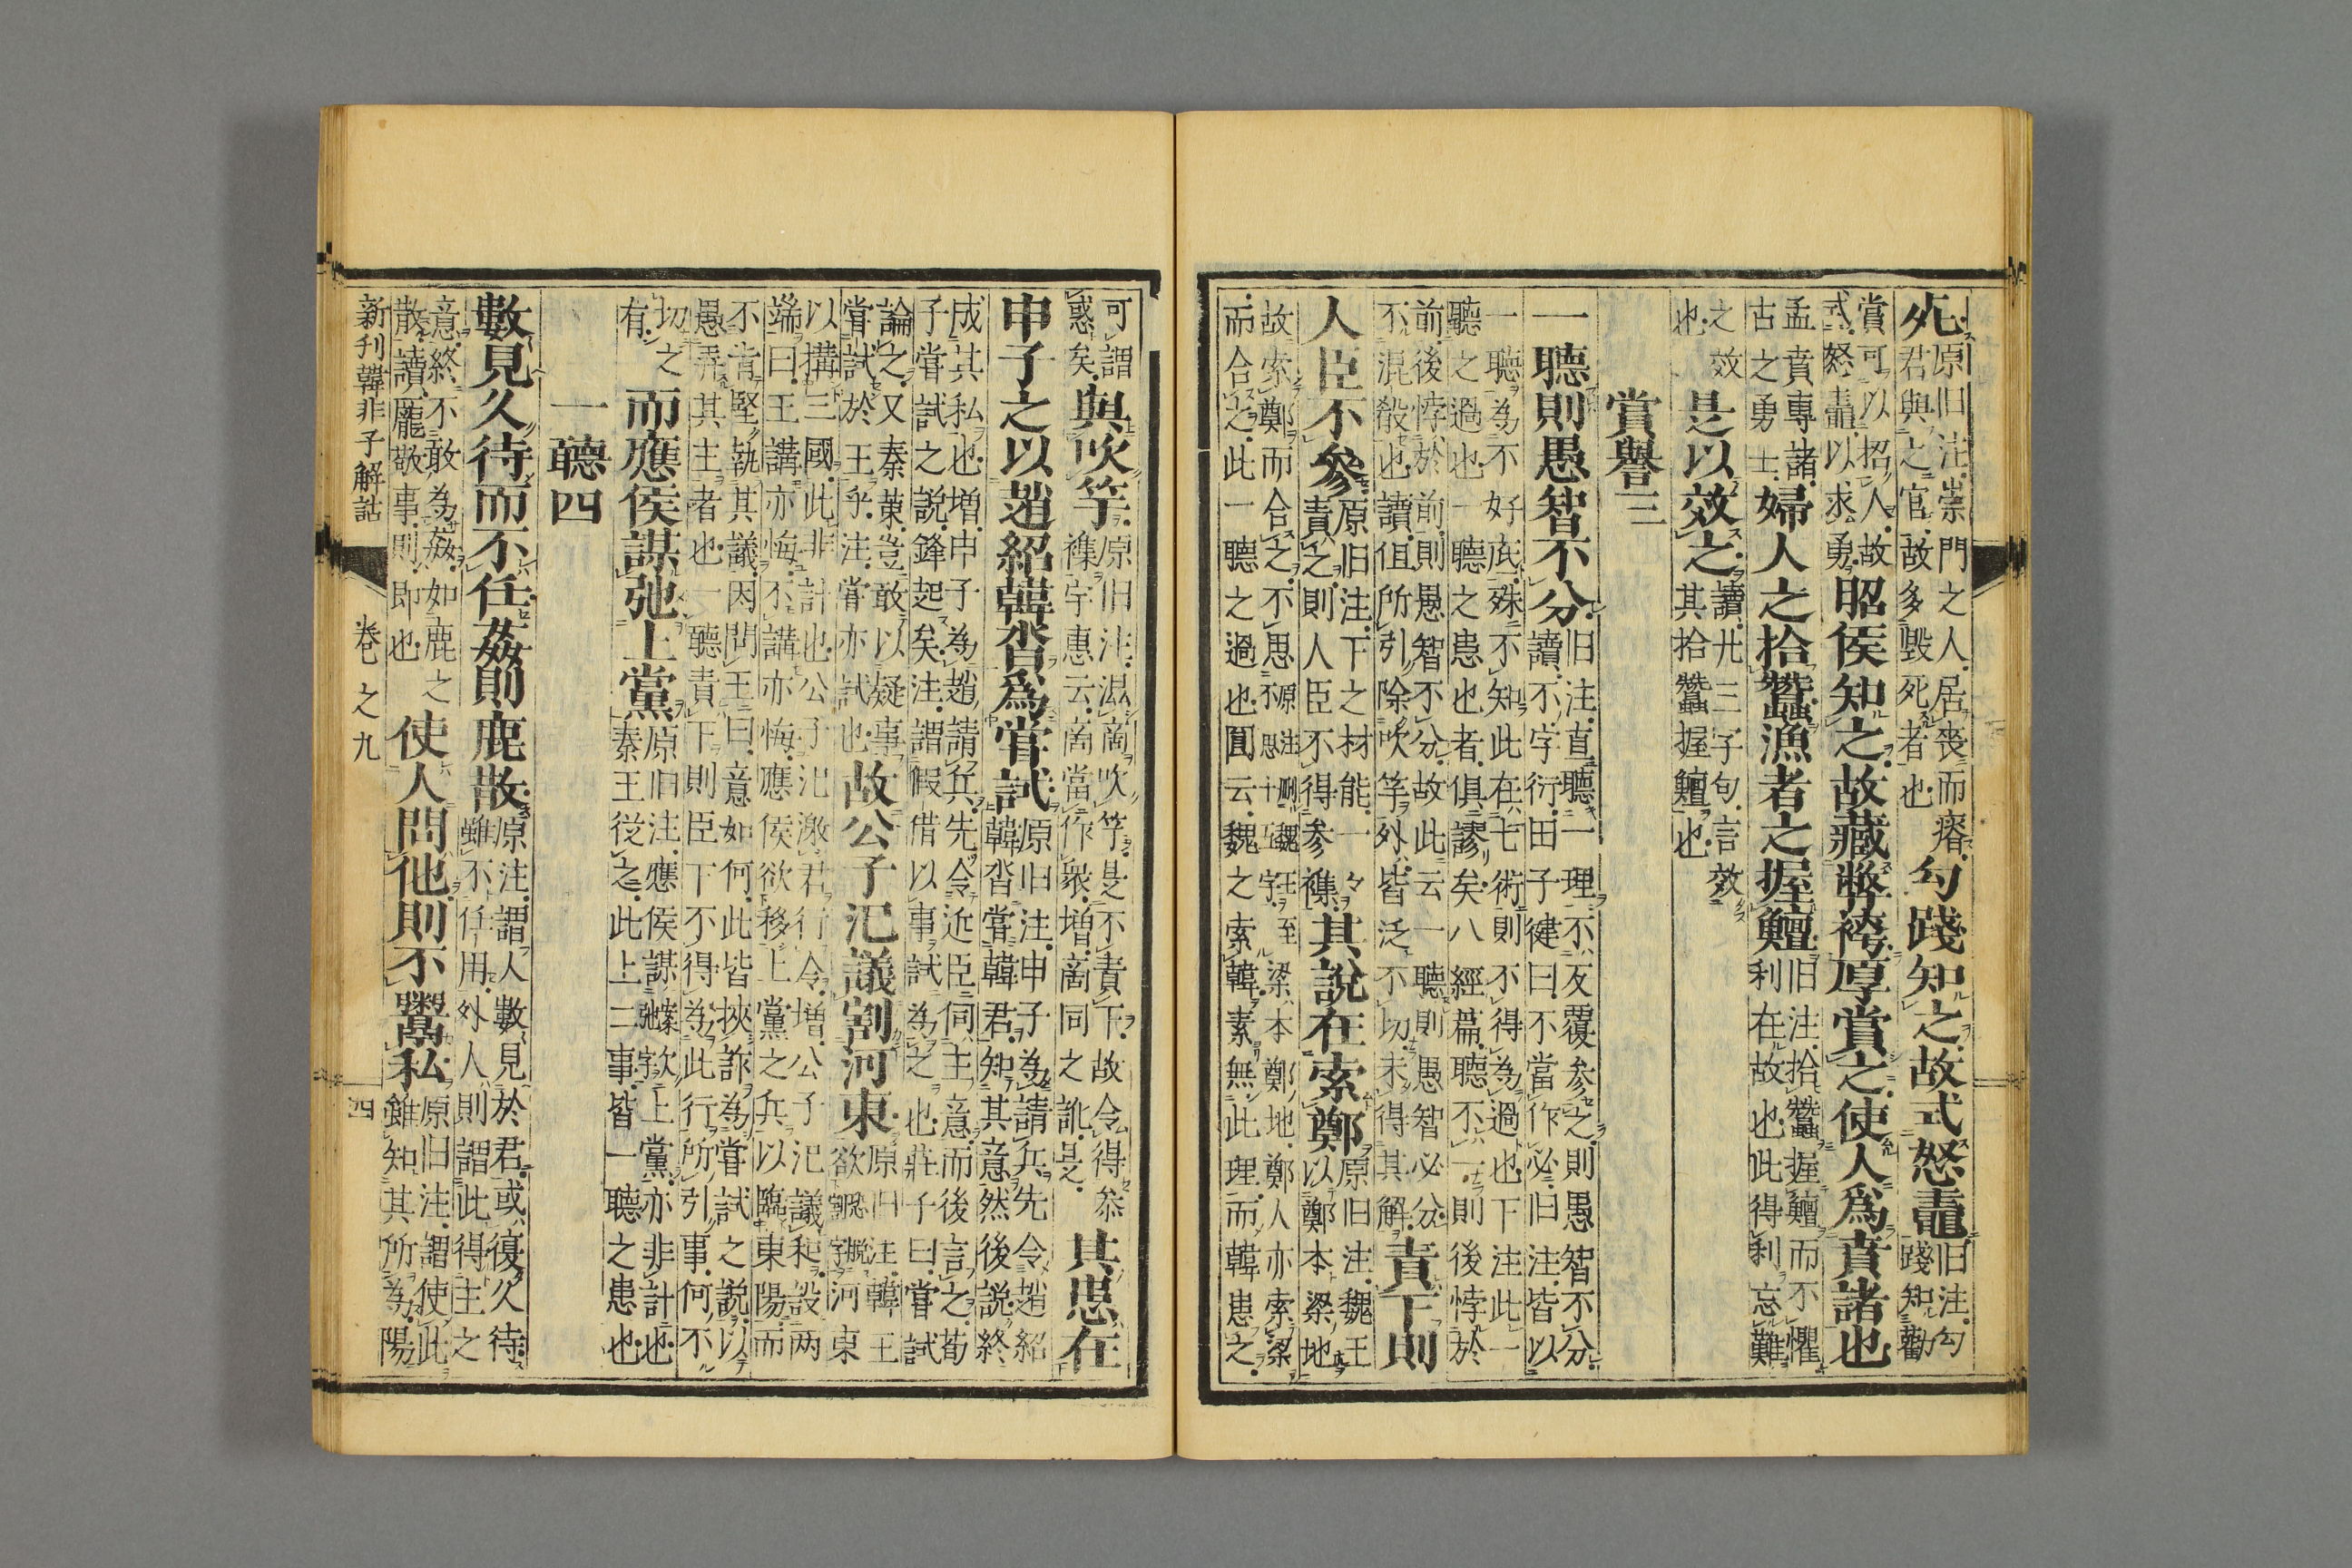 死原旧注崇門之人居喪而瘠
君與之官故多毀死者也勾踐知之故式怒鼃旧注勾
踐知勸
賞可以招人故
式怒鼃以求勇昭侯知之故藏弊袴厚賞之使人爲賁諸也
孟賁專諸
古之勇士婦人之拾蠶漁者之握鱣旧注拾蠶握鱣而不懼
利在故也此得利忘難
之效
也是以效之讀廾三子句言效
其拾蠶握鱣也
賞譽三
一聽則愚智不分旧注直聽一理不反覆参之則愚智不分
讀不字衍田子健曰不當作必旧注皆以
一聽為不好底殊不知此在七術則不得為過也下注此一
聽之過也一聽之患也者俱謬矣八經篇聽不一則後悖於
前後悖於前則愚智不分故此云一聽則愚智必分
不混殽也讀但所引除吹竽外皆泛不切未得其解責下則
人臣不參原旧注下之材能一々
責之則人臣不得参襍其說在索鄭原旧注魏王
以鄭本梁地
故索鄭而合之不思原注刪魏王至梁本鄭地鄭人亦索梁
不思十五字
而合之此一聽之過也圓云魏之索韓素無此理而韓患之
可謂
惑矣與吹竽原旧注溫啇吹竽是不責下故令得恭
襍字惠云啇當作衆增啇同之訛是其患在
申子之以趙紹韓沓爲嘗試原旧注申子為請兵先令趙紹
韓沓嘗韓君知其意然後説終
成其私也增申子為趙請兵先令近臣伺主意而後言之荀
子嘗試之説鋒起矣注謂假借以事試為之也莊子曰嘗試
論之又秦策豈敢以疑事
嘗試於王乎注嘗亦試也故公子汜議割河東原旧注韓王
欲割河東
以搆三國此非計也公子汜激君行令增公子汜議和設両
端曰王講亦悔不講亦悔應侯欲移上黨之兵以臨東陽而
不肯堅執其議因問王曰意如何此皆挾詐為嘗試之説以
愚弄其主者也一聽責下則臣下不得為此行所引事何不
切之
有而應侯謀弛上黨原旧注應侯謀弛上黨亦非計也
秦王從之此上二事皆一聽之患也
一聽四
數見久待而不任姦則鹿散原注謂人數見於君或復久待
雖不任用外人則謂此得主之
意終不敢為姦如鹿之
散讀龎敬事則即也使人問他則不鬻私原旧注謂使此
雖知其所為陽
新刊韓非子解詁
卷之九
四